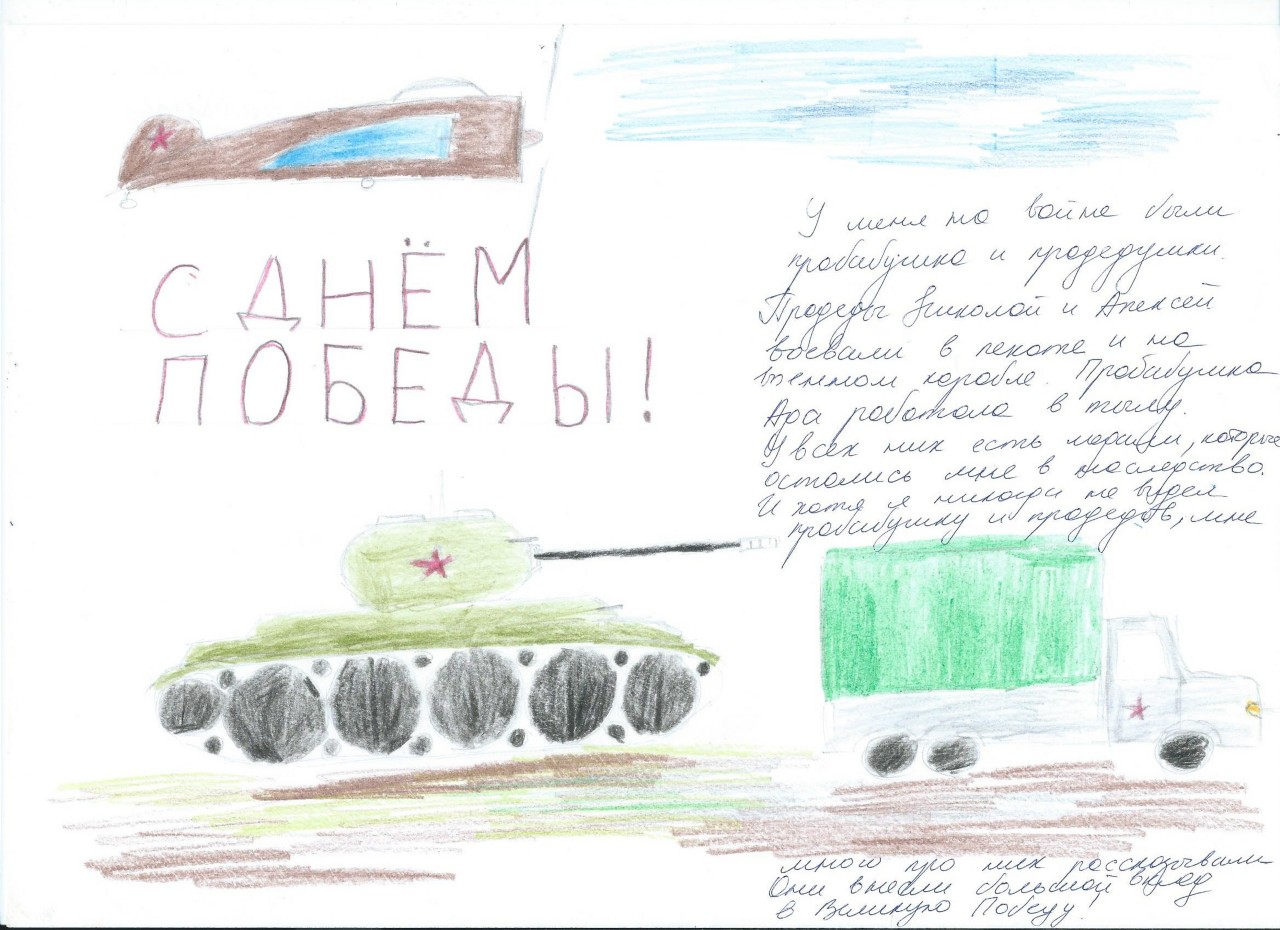 С ДНЁМ
ПОБЕДЫ!
У меня на войне были
прабабушка и прадедушки.
Прадеды Николай и Алексей
воевали в пехоте и на
военном корабле. Прабабушка
Ара работала в тылу.
У всех них есть медали, которые
остались мне в наследство.
И хотя я никогда не видел
прабабушку и прадедов, мне
много про них рассказывали
Они внесли большой вклад
в Великую Победу!